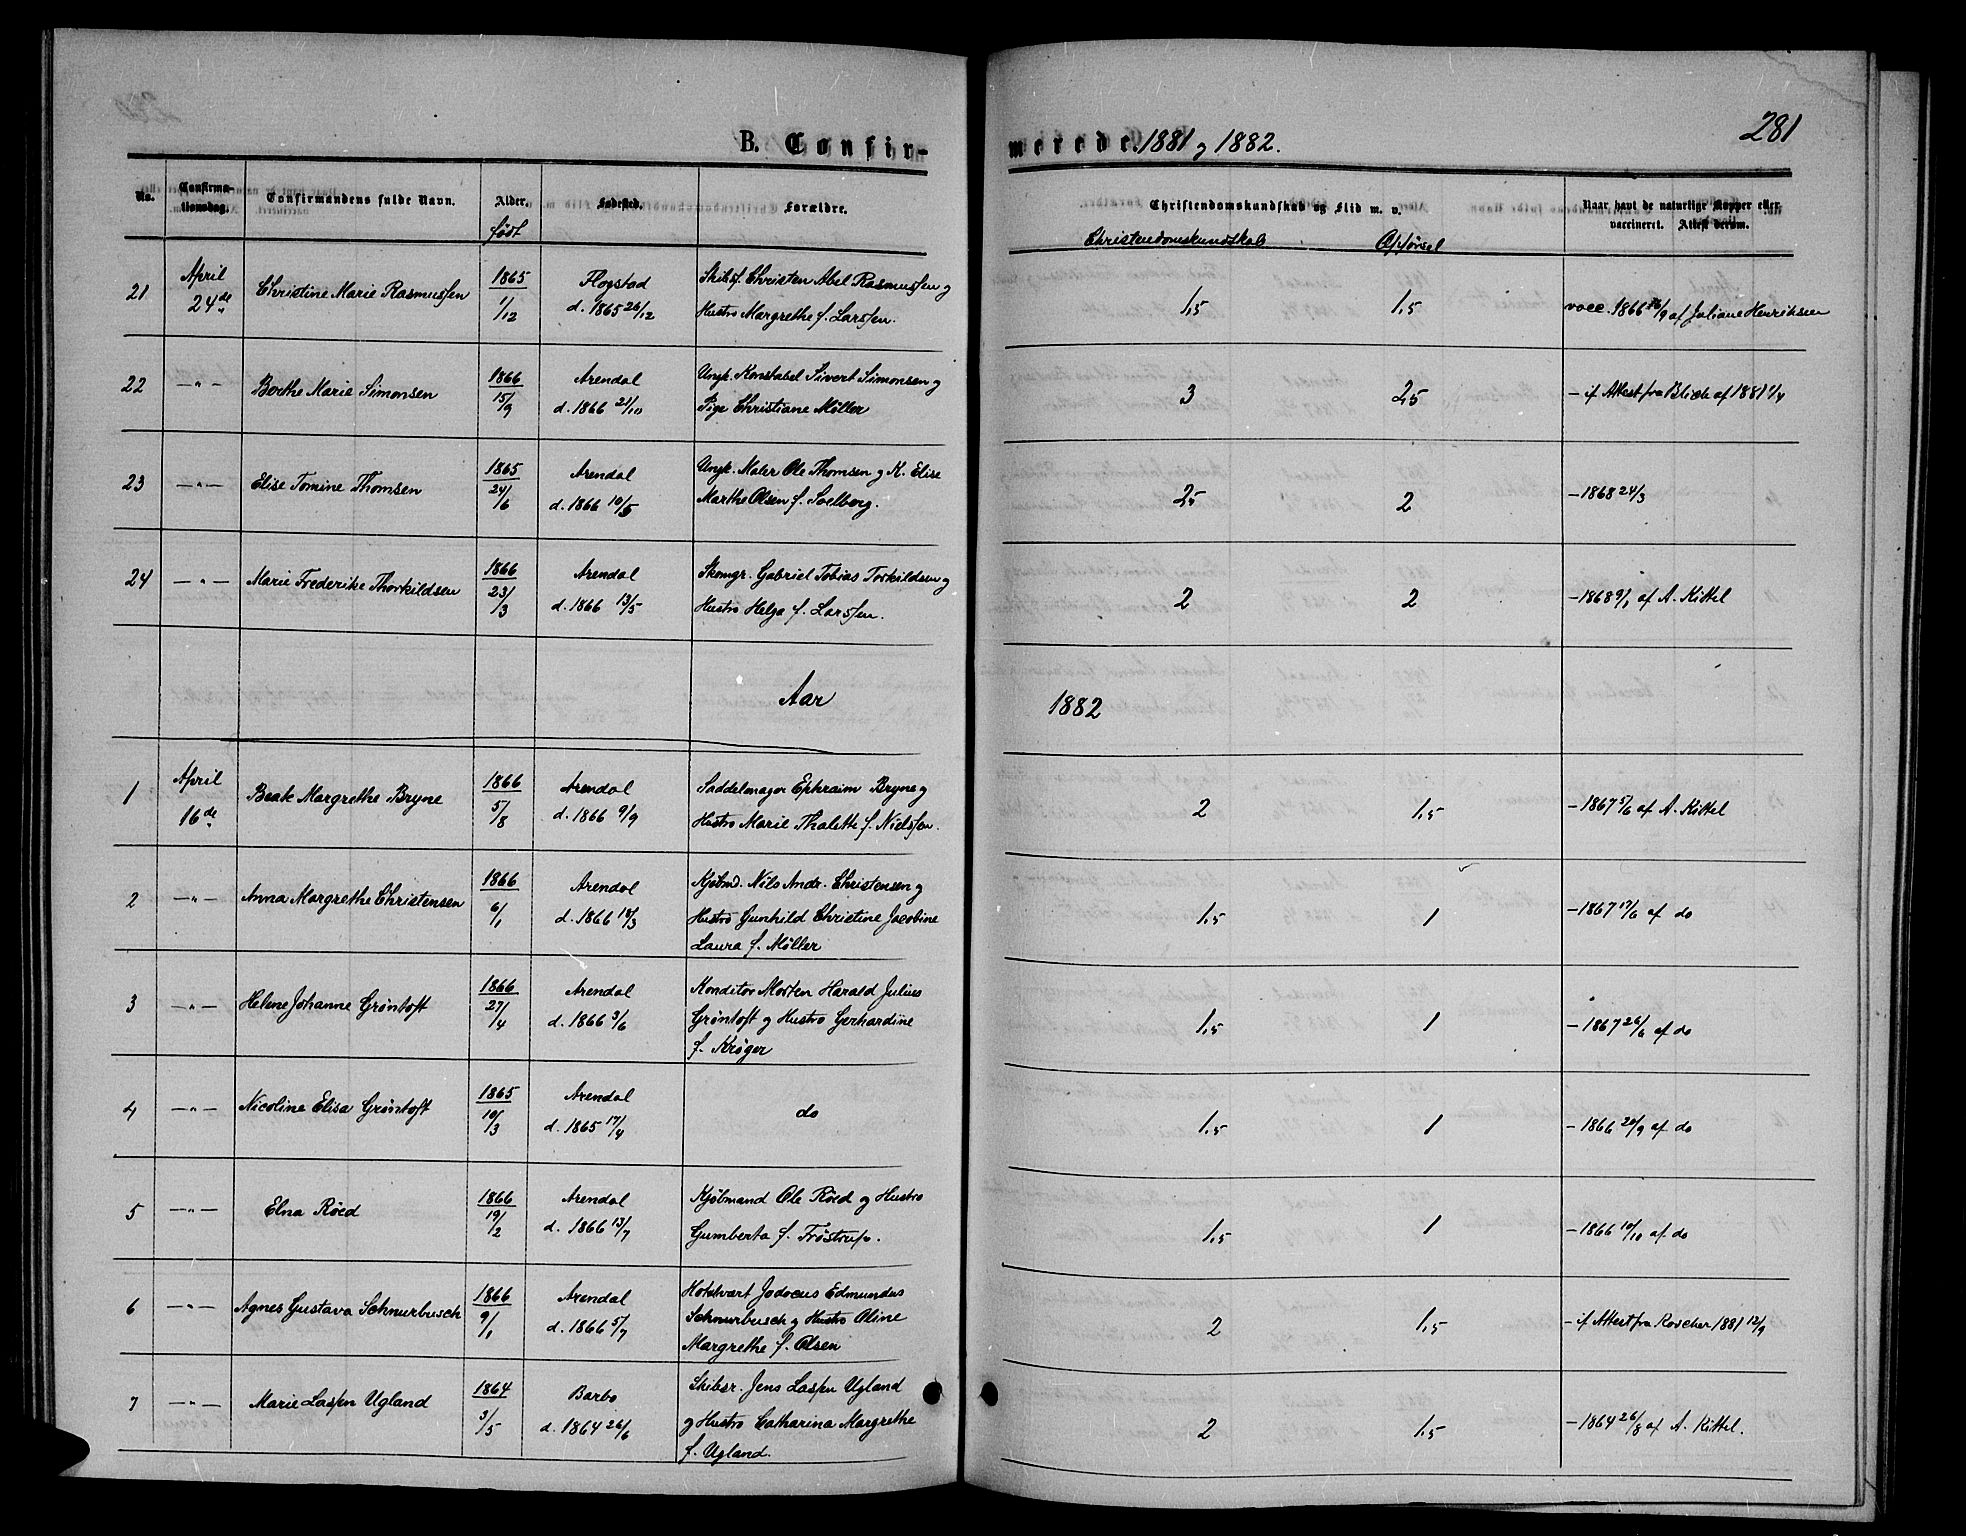 281
B. Confirmerede. 1881 og 1882.
No. Confirmationsdag. Confirmandens fulde Navn. Alder. født Fødested. Forældre. Christendomskundskab og Flid m. v. Naar havt de naturlige Kopper eller vaccineret. Attest derom.
Christendomskundskab Opførsel
21 April 24de Christine Marie Rasmussen 1865 1/12 Flogstad d. 1865 26/12 Skibsf. Christen Abel Rasmussen og
Hustro Margrethe f. Larssen. 1,5 1,5 vacc. 1866 26/9 af Juliane Henriksen
22 —"— Berthe Marie Simonsen 1866 15/9 Arendal d. 1866 21/10 Ungk. Konstabel Sivert Simonsen og
Pige Christiane Møller 3 2,5 — if Attest fra Blich af 1881 1/4
23 —"— Elise Tomine Thomsen 1865 24/6 Arendal d. 1866 10/5 Ungk. Maler Ole Thomsen og K. Elise
Marthe Olsen f. Solberg. 2,5 2 — 1868 24/3
24 —"— Marie Frederike Thorkildsen 1866 23/3 Arendal d. 1866 13/5 Skomgr. Gabriel Tobias Torkildsen og
Hustro Helga f. Larssen. 2 2 — 1868 9/1 af A. Kittel
Aar 1882
1 April 16de Beate Margrethe Bryne 1866 5/8 Arendal d. 1866 9/9 Saddelmager Ephraim Bryne og
Hustro Marie Thalette f. Nielssen. 2 1,5 — 1867 5/6 af A. Kittel
2 —"— Anna Margrethe Christensen 1866 6/1 Arendal d. 1866 18/3 Kjøbmd. Nils Andr. Christensen og
Hustro Gunhild Christine Jacobine
Laura f. Møller 1,5 1 — 1867 17/6 af do
3 —"— Helene Johanne Grøntoft 1866 27/4 Arendal d. 1866 3/6 Konditor Morten Harald Julius
Grøntoft og Hustro Gerhardine
f. Krøger 1,5 1 — 1867 26/6 af do
4 —"— Nicoline Elisa Grøntoft 1865 10/3 Arendal d. 1865 17/4 do 1,5 1 — 1866 20/9 af do
5 —"— Elna Røed 1866 19/2 Arendal d. 1866 13/7 Kjøbmand Ole Røed og Hustro
Gumberta f. Frøstrup. 1,5 1 — 1866 10/10 af do
6 —"— Agnes Gustava Schnurbusch 1866 9/1 Arendal d. 1866 5/7 Hotelvært Jodocus Edmundus
Schnurbusch og Hustro Oline
Margrethe f. Olsen 2 1,5 — if Attest fra Roscher 1881 12/9
7 —"— Marie Lassen Ugland 1864 3/5 Barbo d. 1864 26/6 Skibsr. Jens Lassen Ugland
og Hustro Catharina Margrethe
f. Ugland. 2 1,5 — 1864 26/8 af A. Kittel.